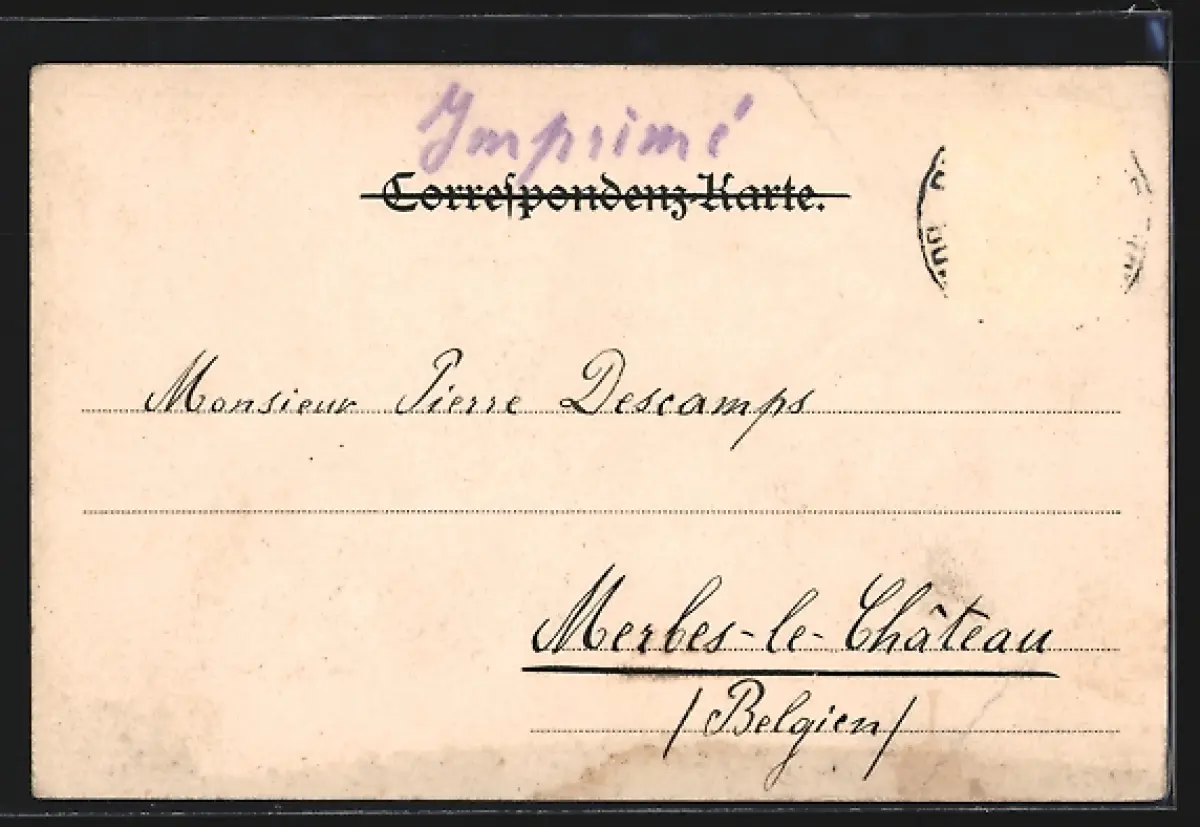 Imprimé
Correspondenz-Karte.
Monsieur Pierre Descamps
Merbes-le-Château
/Belgien/